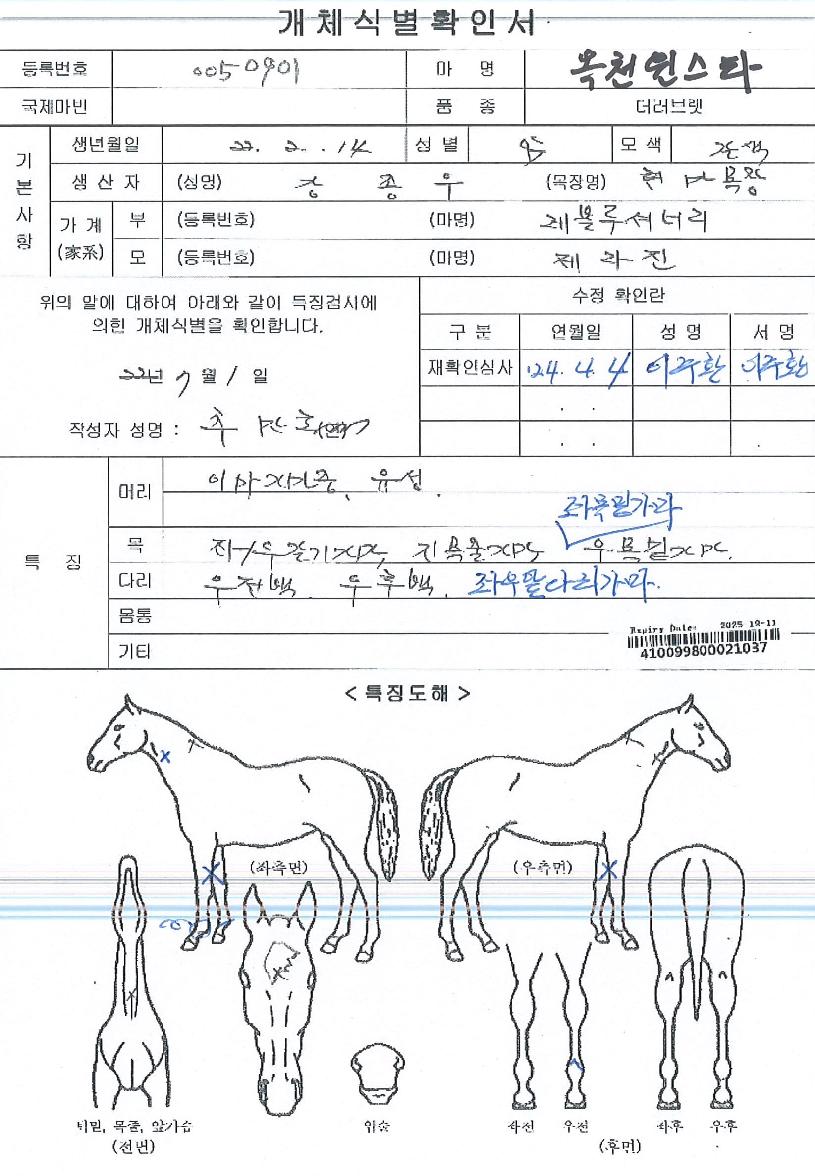 개체식별확인서
등록번호 0050901 마 명 옥천윈스타
국제마번 품 종 더러브렛
기본사항
생년월일 22. 2. .14 성 별 암 모 색 갈색
생 산 자 (성명) 강 종 우 (목장명)
가 계 (家系) 부 (등록번호) (마명) 레블루셔너리
모 (등록번호) (마명) 제 라 진
위의 말에 대하여 아래와 같이 특징검사에
의한 개체식별을 확인합니다.
22년 7 월 1 일
작성자 성명 :
수정 확인란
구 분 연월일 성 명 서 명
재확인심사 '24. 4. 4 이주환 이주환
. .
. . .
특 징
머리 유성.
좌목필가마
목
다리 우전백. 우후백. 좌우앞다리가마.
몸통
기타
Expiry Date: 2025-12-11
410099800021037
< 특징도해 >
(좌측면) (우측면)
턱밑, 목줄, 앞가슴
(전면)
입술
좌전 우전 좌후 우후
(후면)